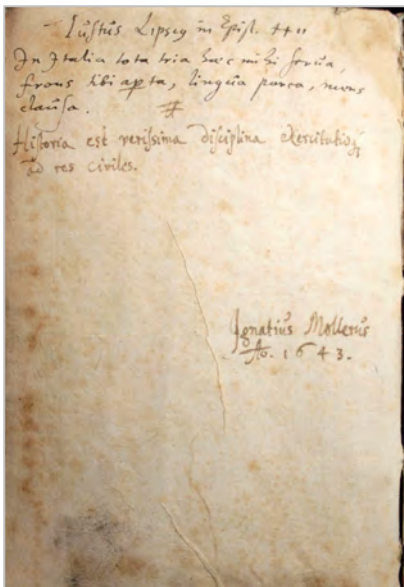 Iustus Lipsius in Epist.
In Italia tota tria hæc mihi serua,
frons tibi aperta, lingua parca, mens
clausa.
Historia est verissima disciplina exercitatioq;
ad res civiles.
Ignatius Mollerus
Ao. 1643.